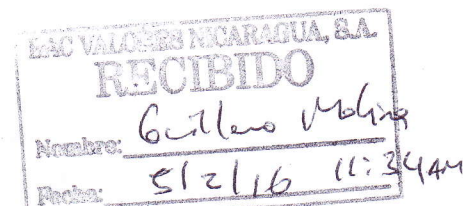 BAC VALORES NICARAGUA, S.A.
RECIBIDO
Nombre: Guillermo Molina
Fecha: 5/2/16 11:34AM